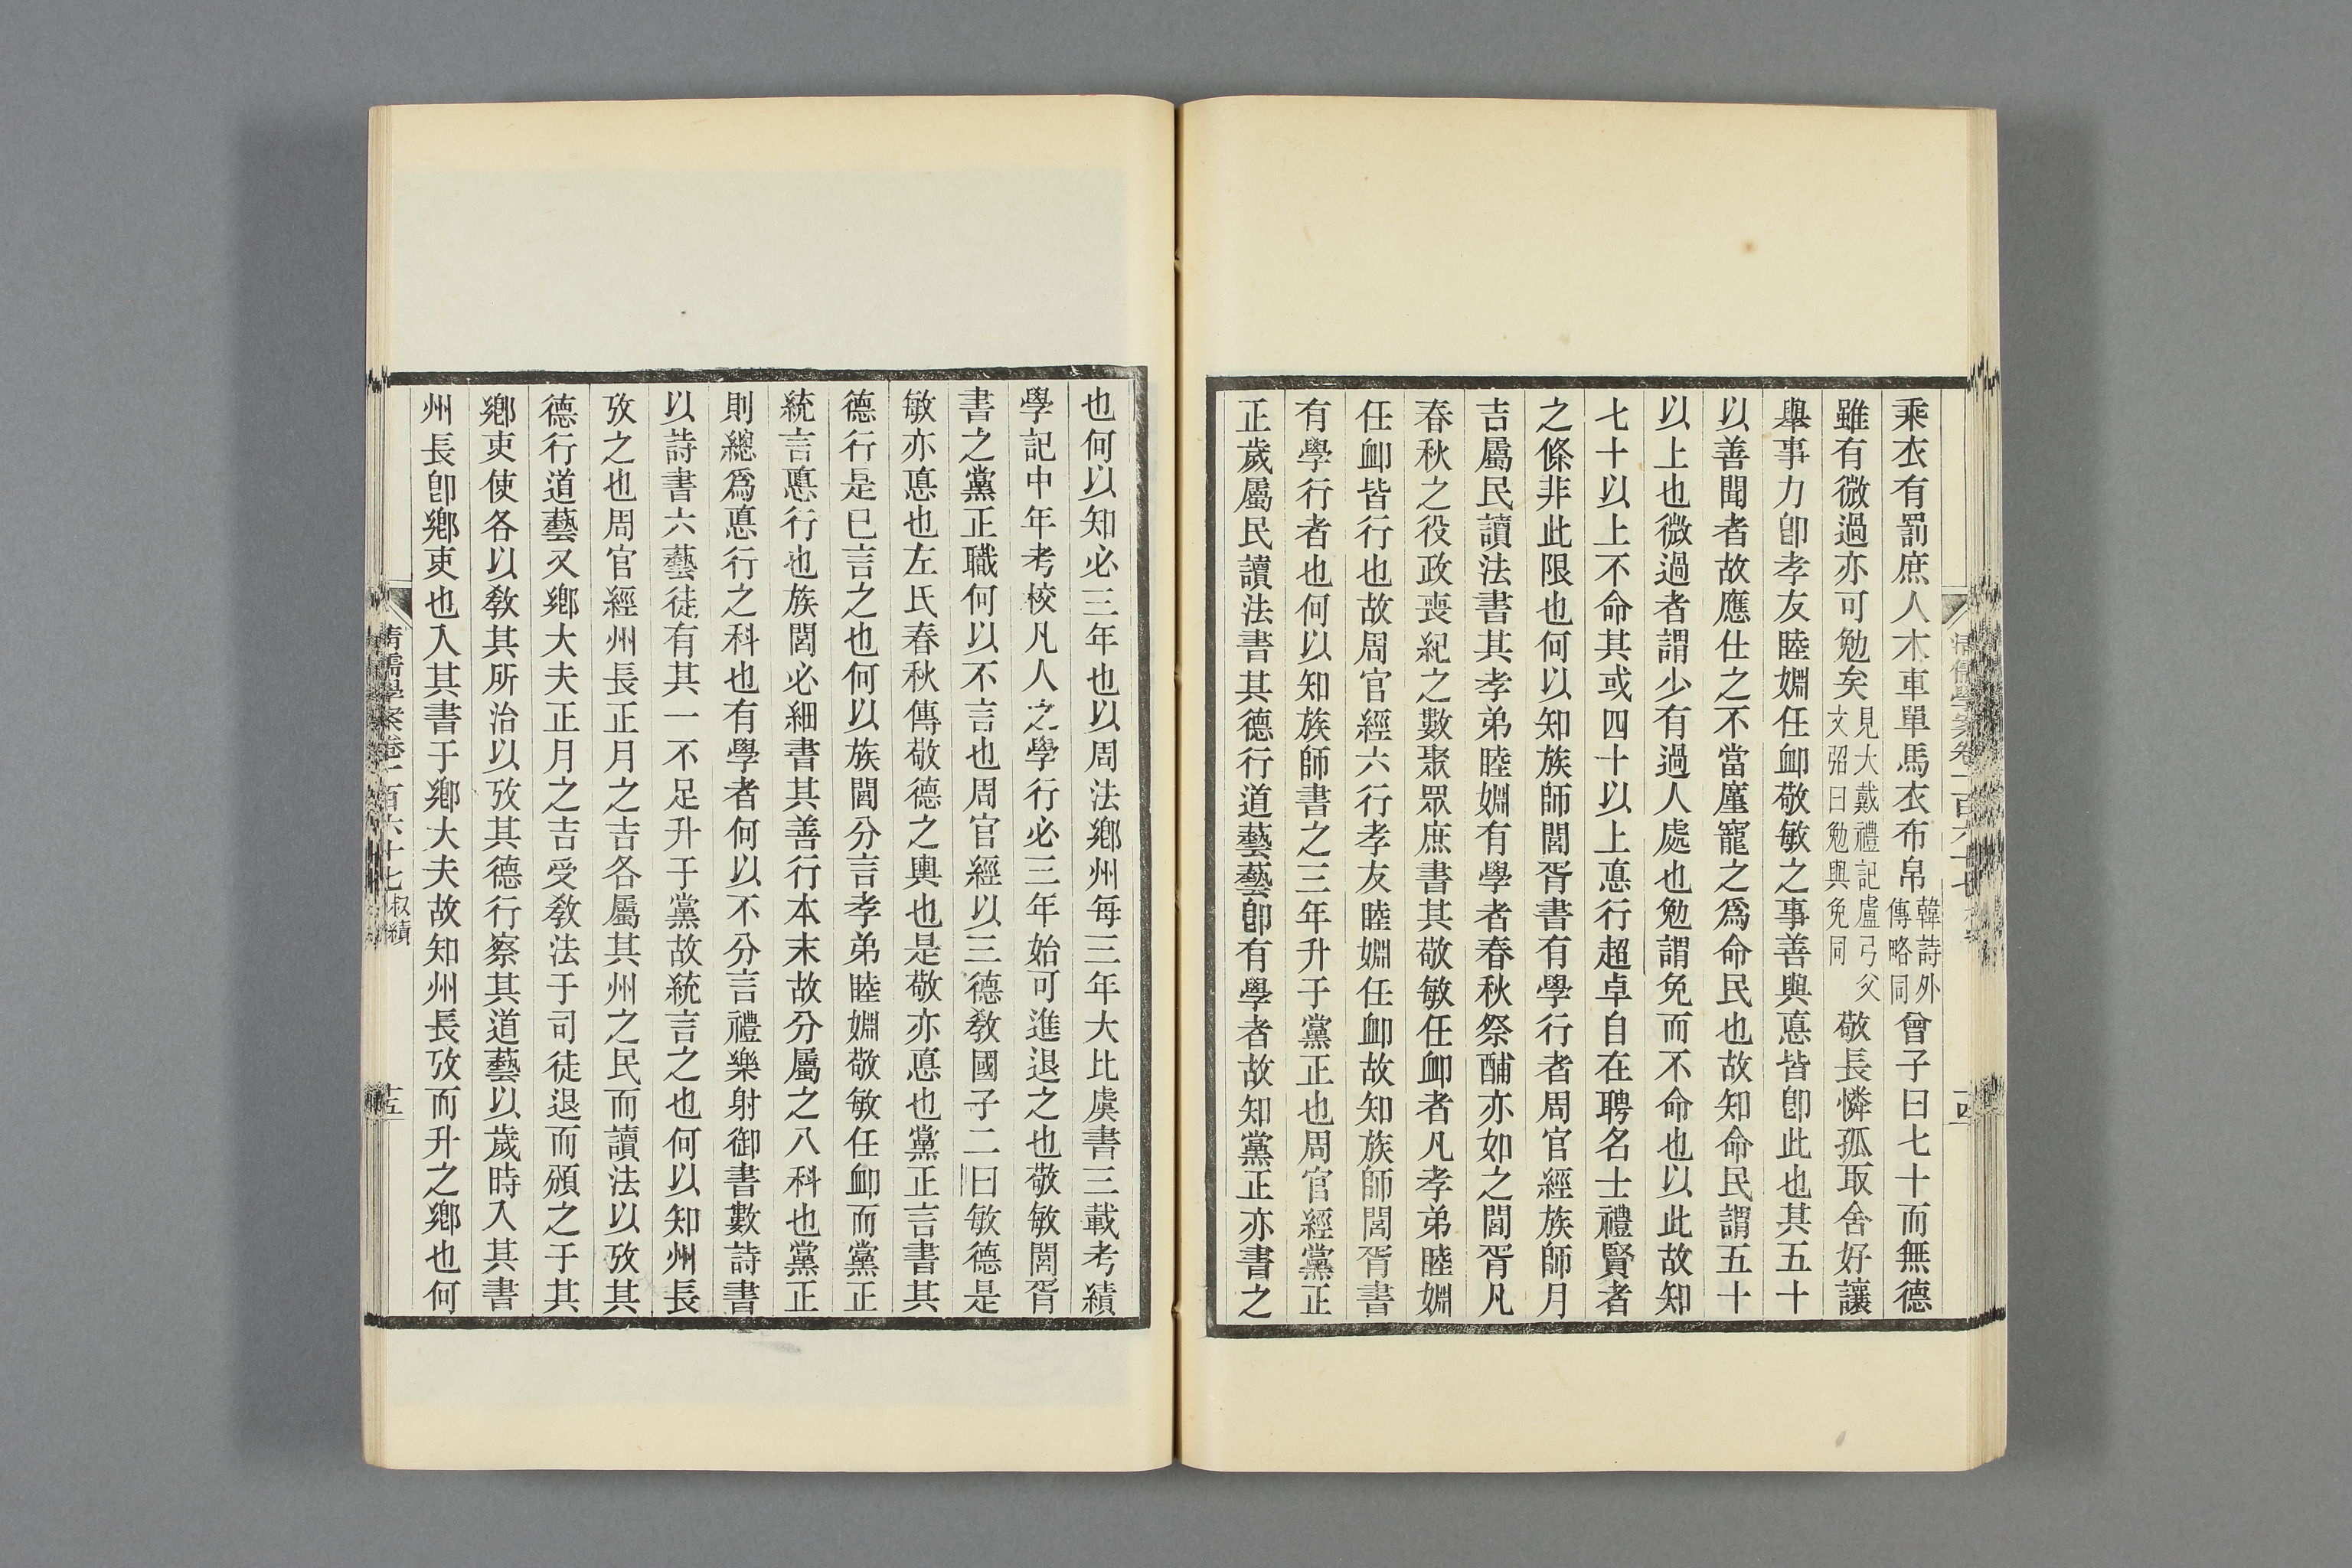 乘衣有罰庶人木車單馬衣布帛韓詩外傳略同曾子曰七十而無德
雖有微過亦可勉矣見大戴禮記盧弓父文弨曰勉與免同敬長憐孤取舍好讓
舉事力卽孝友睦婣任卹敬敏之事善與悳皆卽此也其五十
以善聞者故應仕之不當廑寵之爲命民也故知命民謂五十
以上也微過者謂少有過人處也勉謂免而不命也以此故知
七十以上不命其或四十以上悳行超卓自在聘名士禮賢者
之條非此限也何以知族師閭胥書有學行者周官經族師月
吉屬民讀法書其孝弟睦婣有學者春秋祭酺亦如之閭胥凡
春秋之役政喪紀之數聚眾庶書其敬敏任卹者凡孝弟睦婣
任卹皆行也故周官經六行孝友睦婣任卹故知族師閭胥書
有學行者也何以知族師書之三年升于黨正也周官經黨正
正歲屬民讀法書其德行道藝藝卽有學者故知黨正亦書之
也何以知必三年也以周法鄉州每三年大比虞書三載考績
學記中年考校凡人之學行必三年始可進退之也敬敏閭胥
書之黨正職何以不言也周官經以三德敎國子二曰敏德是
敏亦悳也左氏春秋傳敬德之輿也是敬亦悳也黨正言書其
德行是已言之也何以族閭分言孝弟睦婣敬敏任卹而黨正
統言悳行也族閭必細書其善行本末故分屬之八科也黨正
則總爲悳行之科也有學者何以不分言禮樂射御書數詩書
以詩書六藝徒有其一不足升于黨故統言之也何以知州長
攷之也周官經州長正月之吉各屬其州之民而讀法以攷其
德行道藝又鄉大夫正月之吉受敎法于司徒退而頒之于其
鄉吏使各以敎其所治以攷其德行察其道藝以歲時入其書
州長卽鄉吏也入其書于鄉大夫故知州長攷而升之鄉也何
清儒學案卷一百六十七 叔績
十五